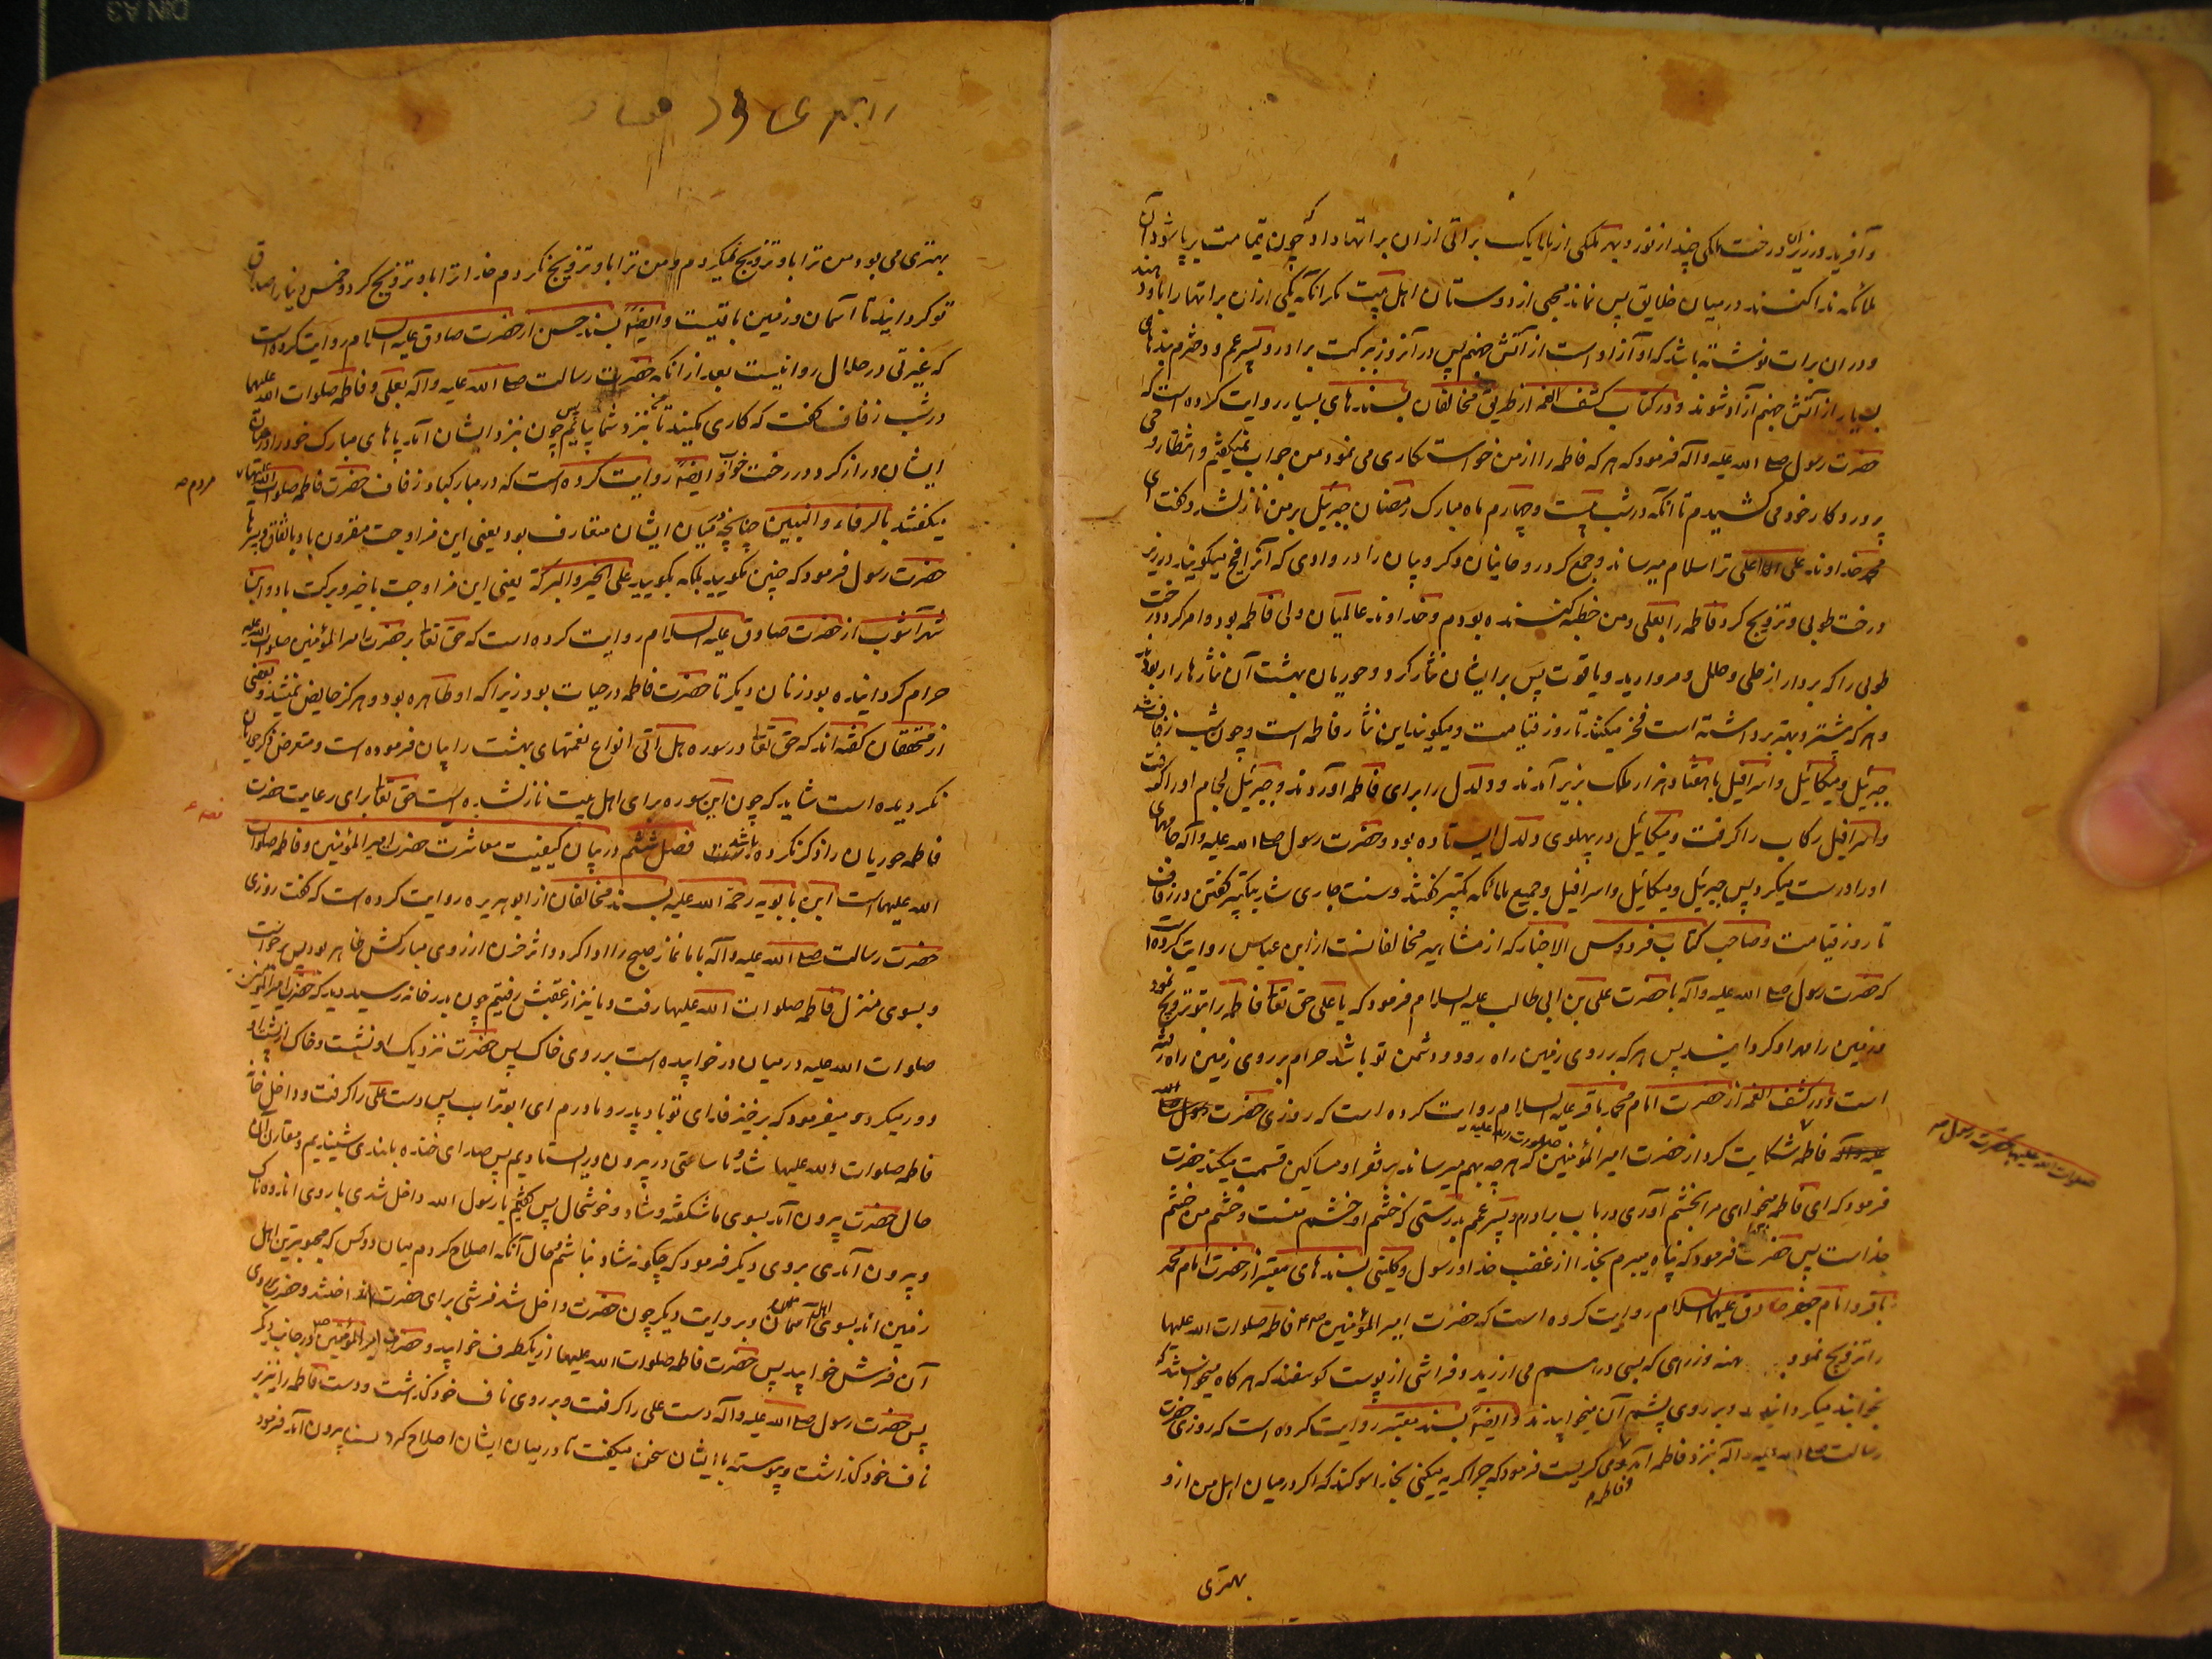 و آفرید در زیر آن درخت ملکی چند از نور و بهر ملکی از ملایک براتی از ان براتها داد که چون قیامت برپا شود آن
ملائکه ندا کنند در میان خلایق پس نماند محبی از دوستان اهل بیت مگر آنکه یکی از ان براتها را باو دهند
و در ان برات نوشته باشد که او آزاد است از آتش جهنم پس در آنروز ببرکت برادر و پسر عم و دخترم بندهای
بسیار از آتش جهنم آزاد شوند و در کتاب کشف الغمه از طریق مخالفان بسندهای بسیار روایت کرده است که
حضرت رسول صلی الله علیه وآله فرمود که هر که فاطمه را از من خواستکاری می نمود من جواب نمیکفتم و انتظار وحی
پروردکار خود می کشیدم تا آنکه در شب بیست و چهارم ماه مبارک رمضان جبرئیل بر من نازل شد و کفت ای
محمد خداوند علی اعلی ترا سلام میرساند و جمع کرد روحانیان و کروبیان را در وادی که آنرا افیح میکویند در زیر
درخت طوبی و تزویج کرد فاطمه را بعلی و من خطبه کننده بودم و خداوند عالمیان ولی فاطمه بود و امر کرد درخت
طوبی را که بردارد از حلی و حلل و مروارید و یاقوت پس بر ایشان نثار کرد و حوریان بهشت آن نثارها را ربودند
و هر که بیشتر و بهتر برداشته است فخر میکند تا روز قیامت و میکویند این نثار فاطمه است و چون شب زفاف شد
جبرئیل و میکائیل و اسرافیل با هفتاد هزار ملک بزیر آمدند و دلدل را برای فاطمه آوردند و جبرئیل لجام او را کرفت
و اسرافیل رکاب را کرفت و میکائیل در پهلوی دلدل ایستاده بود و حضرت رسول صلی الله علیه وآله جامهای
او را درست میکرد پس جبرئیل و میکائیل و اسرافیل و جمیع ملائکه تکبیر کفتند و سنت جاری شد تکبیر کفتن در زفاف
تا روز قیامت و صاحب کتاب فردوس الاخبار که از مشاهیر مخالفانست از ابن عباس روایت کرده است
که حضرت رسول صلی الله علیه وآله با حضرت علی بن ابی طالب علیه السلام فرمود که یا علی حق تعالی فاطمه را بتو تزویج نمود
و زمین را مهر او کردانید پس هر که بر روی زمین راه رود و دشمن تو باشد حرام بر روی زمین راه رفته
است و در کشف الغمه از حضرت امام محمد باقر علیه السلام روایت کرده است که روزی حضرت رسول صلی الله
علیه وآله فاطمه شکایت کرد از حضرت امیر المؤمنین صلوات الله علیه که هر چه بهم میرساند بر فقرا و مساکین قسمت میکند حضرت
صلوات الله علیها بحضرت رسول
فرمود که ای فاطمه میخواهی مرا بخشم آوری در باب برادرم و پسر عمم بدرستی که خشم او خشم منست و خشم من خشم
خداست پس حضرت فرمود که پناه میبرم بخدا از غضب خدا و رسول و کلینی بسندهای معتبر از حضرت امام محمد
باقر و امام جعفر صادق علیهما السلام روایت کرده است که حضرت امیر المؤمنین فاطمه صلوات الله علیها
را تزویج نمود وزرهی که بسی درهم می ارزید و فراشی از پوست کوسفند که هر کاه میخواستند که
بخوابند میکردانیدند و بر روی پشم آن میخوابیدند و ایضا بسند معتبر روایت کرده است که روزی حضرت
رسالت صلی الله علیه وآله بنزد فاطمه آمد و می کریست فرمود که چرا کریه میکنی بخدا سوکند که اکر در میان اهل من از و
و فاطمه
بهتری
بهتری می بود من ترا باو تزویج نمیکردم و من ترا باو تزویج نکردم خدا ترا باو تزویج کرد و خمس دنیا را صداق
تو کردانید تا آسمان و زمین باقیست و ایضا بسند حسن از حضرت صادق علیه السلام روایت کرده است
که غیرتی در حلال روا نیست بعد از آنکه حضرت رسالت صلی الله علیه وآله بعلی و فاطمه صلوات الله علیهما
در شب زفاف کفت که کاری مکنید تا من بنزد شما بیایم پس چون بنزد ایشان آمد پاهای مبارک خود را در میان
ایشان دراز کرد در رخت خواب و ایضا روایت کرده است که در مبارکباد زفاف حضرت فاطمه صلوات الله علیها
مردم
میکفتند بالرفاء و البنین چنانچه در میان ایشان متعارف بود یعنی این مزاوجت مقرون باد باتفاق و پسرها
حضرت رسول فرمود که چنین مکویید بلکه بکویید علی الخیر و البرکة یعنی این مزاوجت با خیر و برکت باد و ابن
شهرآشوب از حضرت صادق علیه السلام روایت کرده است که حق تعالی بر حضرت امیر المؤمنین صلوات الله علیه
حرام کردانیده بود زنان دیکر تا حضرت فاطمه در حیات بود زیرا که او طاهره بود و هرکز حایض نمیشد و بعضی
از محققان کفته اند که حق تعالی در سوره هل اتی انواع نعمتهای بهشت را بیان فرموده است و متعرض ذکر حوریان
نکردیده است شاید که چون این سوره برای اهل بیت نازل شده است حق تعالی برای رعایت حضرت
فاطمه حوریان را ذکر نکرده باشد فصل ششم در بیان کیفیت معاشرت حضرت امیر المؤمنین و فاطمه صلوات
الله علیهما است ابن بابویه رحمة الله علیه بسند مخالفان از ابو هریره روایت کرده است که کفت روزی
حضرت رسالت صلی الله علیه وآله با ما نماز صبح را ادا کرد و اثر حزن از روی مبارکش ظاهر بود پس برخواست
و بسوی منزل فاطمه صلوات الله علیها رفت و ما نیز از عقبش رفتیم چون بدر خانه رسید دید که حضرت امیر المؤمنین
صلوات الله علیه در میان در خوابیده است بر روی خاک پس حضرت نزدیک او نشست و خاک از پشت او
دور میکرد و میفرمود که برخیز فدای تو باد پدر و مادرم ای ابوتراب پس دست علی را کرفت و داخل خانه
فاطمه صلوات الله علیها شد و ما ساعتی در بیرون در ایستادیم پس صدای خنده بلندی شنیدیم و مقارن آن
حال حضرت بیرون آمد بسوی ما شکفته و شاد و خوشحال پس کفتیم یا رسول الله داخل شدی با روی اندوه ناک
و بیرون آمدی بروی دیکر فرمود که چکونه شاد نباشم و حال آنکه اصلاح کردم میان دو کس که محبوبترین اهل
زمین اند بسوی اهل آسمان و بروایت دیکر چون حضرت داخل شد فرشی برای حضرت انداختند و حضرت بر روی
آن فرش خوابید پس حضرت فاطمه صلوات الله علیها از یکطرف خوابید و حضرت امیر المؤمنین در جانب دیکر
پس حضرت رسول صلی الله علیه وآله دست علی را کرفت و بر روی ناف خود کذاشت و دست فاطمه را نیز بر
ناف خود کذاشت و پیوسته با ایشان سخن میکفت تا در میان ایشان اصلاح کرد بیرون آمد فرمود